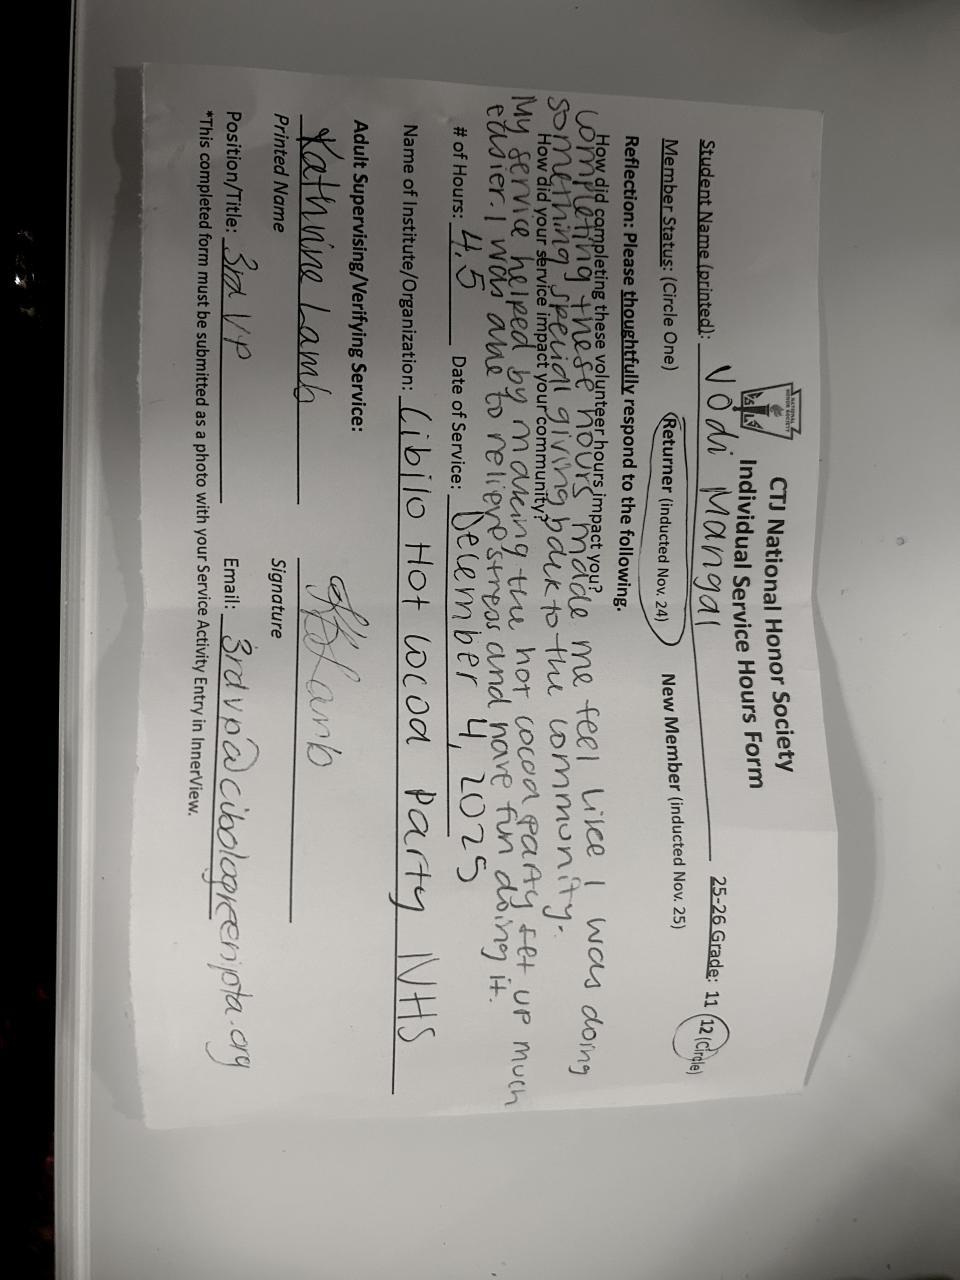 CTJ National Honor Society
Individual Service Hours Form
NATIONAL HONOR SOCIETY
Student Name (printted): Vodi Mangal 25-26 Grade: 11 12 (Circle)
Member Status: (Circle One) Returner (inducted Nov. 24) New Member (inducted Nov. 25)
Reflection: Please thoughtfully respond to the following.
How did completing these volunteer hours impact you?
How did your service impact your community?
Completing these hours made me feel like I was doing
something special giving back to the community.
My service helped by making the hot cocoa party set up much
easier. I was able to relieve stress and have fun doing it.
# of Hours: 4.5 Date of Service: December 4, 2025
Name of Institute/Organization: Cibilo Hot Cocoa Party NHS
Adult Supervising/Verifying Service:
Kathrine Lamb
Printed Name Signature
Position/Title: 3rd VP Email: 3rdvp@cibologreenpta.org
*This completed form must be submitted as a photo with your Service Activity Entry in InnerView.